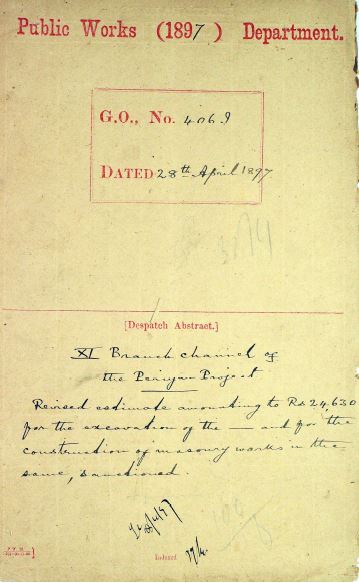 Public Works (1897) Department.
G.O., No. 406 I
DATED 28th April 1897
[Despatch Abstract.]
XI Branch channel of
the Periyar Project
Revised estimate amounting to Rs 24,630
for the excavation of the — and for the
construction of masonry works in the
same, sanctioned.
Indexed